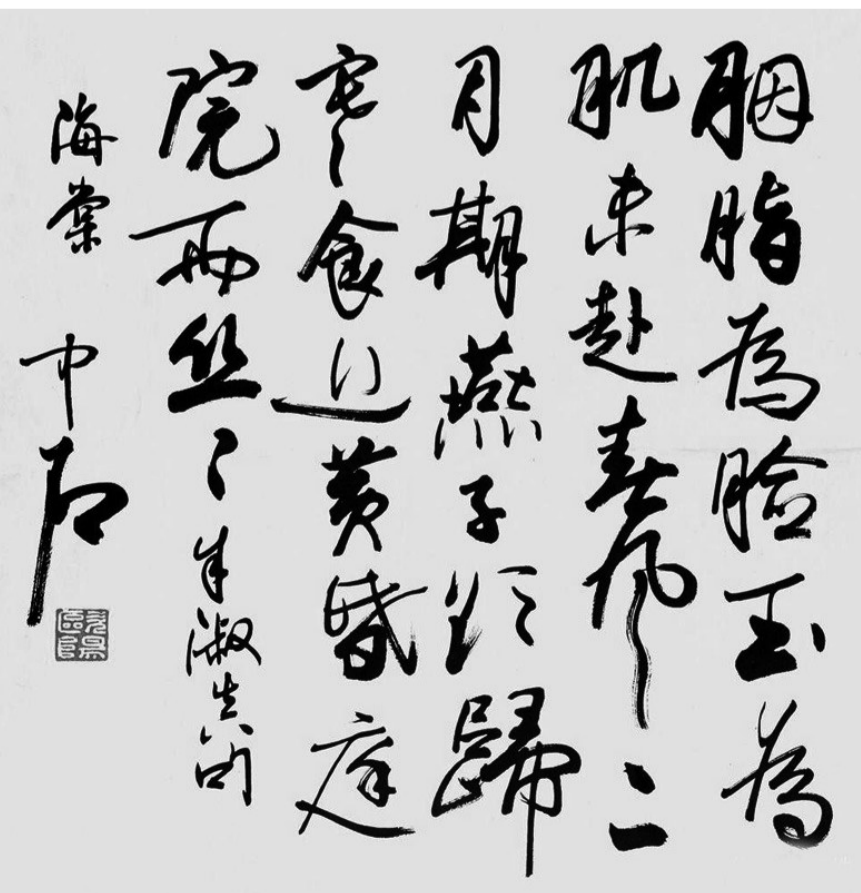 胭脂為臉玉為
肌未赴春風二
月期燕子欲歸
寒食近黄昏庭
院雨絲々朱淑真句
海棠 中石